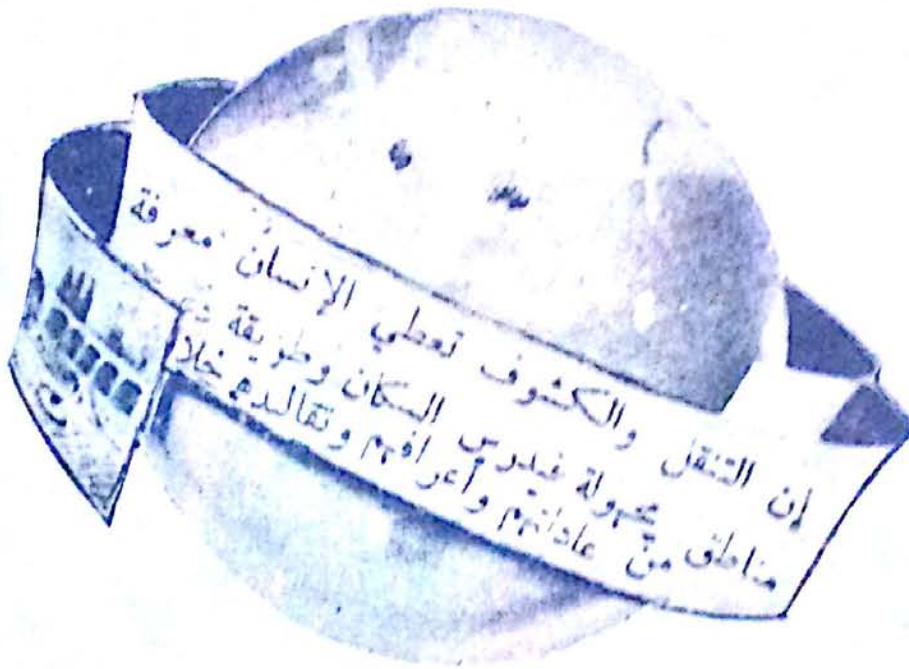 إن التنقل والكشوف تعطي الإنسان معرفة
مناطق مجهولة فيدرس السكان وطريقة
من عاداتهم وأعرافهم وتقاليدهم خلا